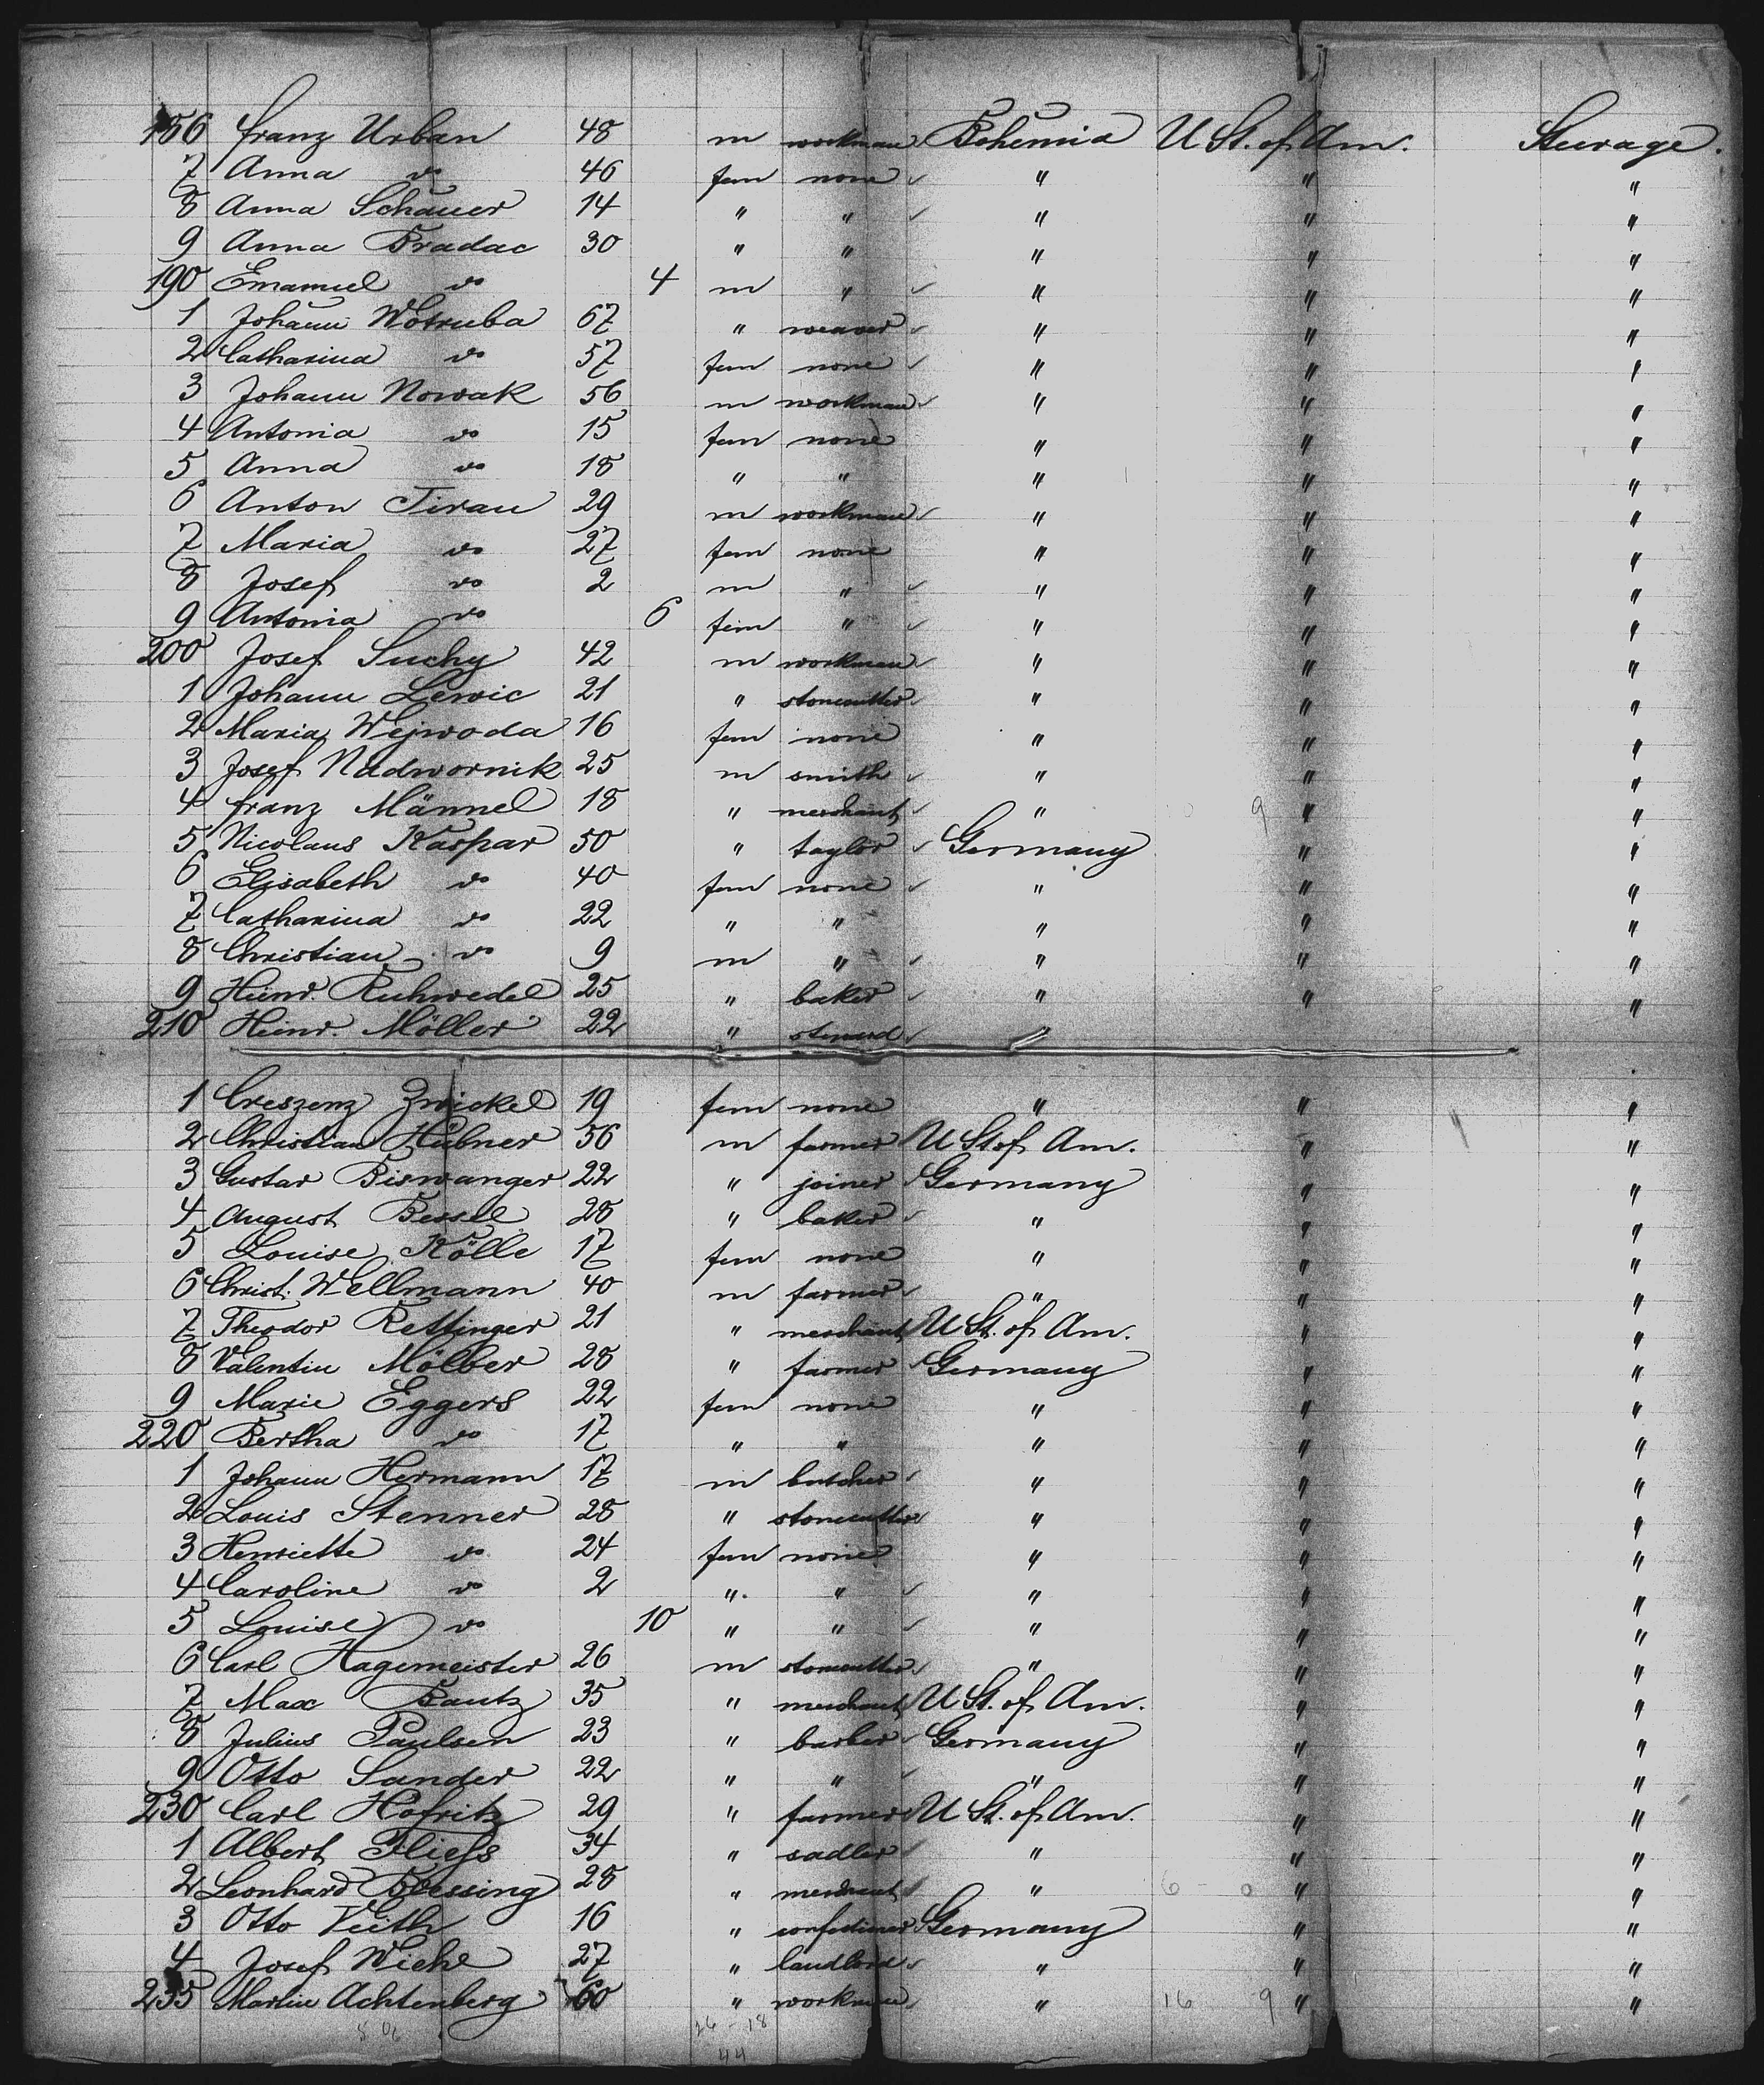 186 Franz Urban 48 m workman Bohemia U St. of Am. Steerage.
7 Anna do 46 fem none " " "
8 Anna Schauer 14 " " " " "
9 Anna Bradac 30 " " " " "
190 Emanuel do 4 m " " " "
1 Johann Wotruba 67 " weaver " " "
2 Catharina do 57 fem none " " "
3 Johann Nowak 56 m workman " " "
4 Antonia do 15 fem none " " "
5 Anna do 18 " " " " "
6 Anton Tirau 29 m workman " " "
7 Maria do 27 fem none " " "
8 Josef do 2 m " " " "
9 Antonia do 6 fem " " " "
200 Josef Suchy 42 m workman " " "
1 Johann Lewic 21 " stonecutter " " "
2 Maria Wejwoda 16 fem none " " "
3 Josef Nadwornik 25 m smith " " "
4 Franz Männel 18 " merchant " 9 " "
5 Nicolaus Kaspar 50 " taylor Germany " "
6 Elisabeth do 40 fem none " " "
7 Catharina do 22 " " " " "
8 Christian do 9 m " " " "
9 Heinr. Ruhwedel 25 " baker " " "
210 Heinr. Möller 22 " steward "
1 Creszenz Zwickel 19 fem none " " "
2 Christian Hübner 56 m farmer U St of Am. " "
3 Gustav Biswanger 22 " joiner Germany " "
4 August Bessel 28 " baker " " "
5 Louise Kölle 17 fem none " " "
6 Christ. Wellmann 40 m farmer " " "
7 Theodor Rettinger 21 " merchant U St. of Am. " "
8 Valentin Mölber 28 " farmer Germany " "
9 Marie Eggers 22 fem none " " "
220 Bertha do 17 " " " " "
1 Johann Hermann 17 m butcher " " "
2 Louis Stenner 28 " stonecutter " " "
3 Henriette do 24 fem none " " "
4 Caroline do 2 " " " " "
5 Louise do 10 " " " " "
6 Carl Hagemeister 26 m stonecutter " " "
7 Max Bautz 35 " merchant U St. of Am. " "
8 Julius Paulsen 23 " barber Germany " "
9 Otto Sander 22 " " " " "
230 Carl Hofritz 29 " farmer U St. of Am. " "
1 Albert Fliess 34 " sadler " " "
2 Leonhard Blessing 28 " merchant " 6 - 0 " "
3 Otto Veith 16 " confectioner Germany " "
4 Josef Wiehe 27 " landlord " " "
235 Martin Achtenberg 60 " workman " 16 9 " "
26 - 18
44